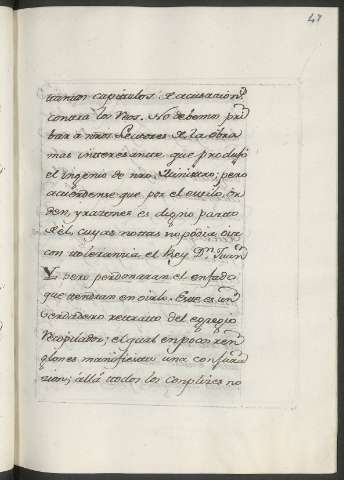 47
tantos capitulos de acusacion
contra los Vtos. No debemos pri
bar à nros Lectores de la obra
mas interesante que produjo
el ingenio de nro. Ministro; pero
acuerdense que por el estilo, or
den, y razones es digno parto
de él, cuyas notas no podia oir
con tolerancia el Rey Dn. Juan
Y pero perdonaran el enfado
que tendran en oirlo. Este es un
verdadero retrato del egregio
Recopilador; el qual en pocos ren
glones manifiesta una confu
sion; allá todos los complices no